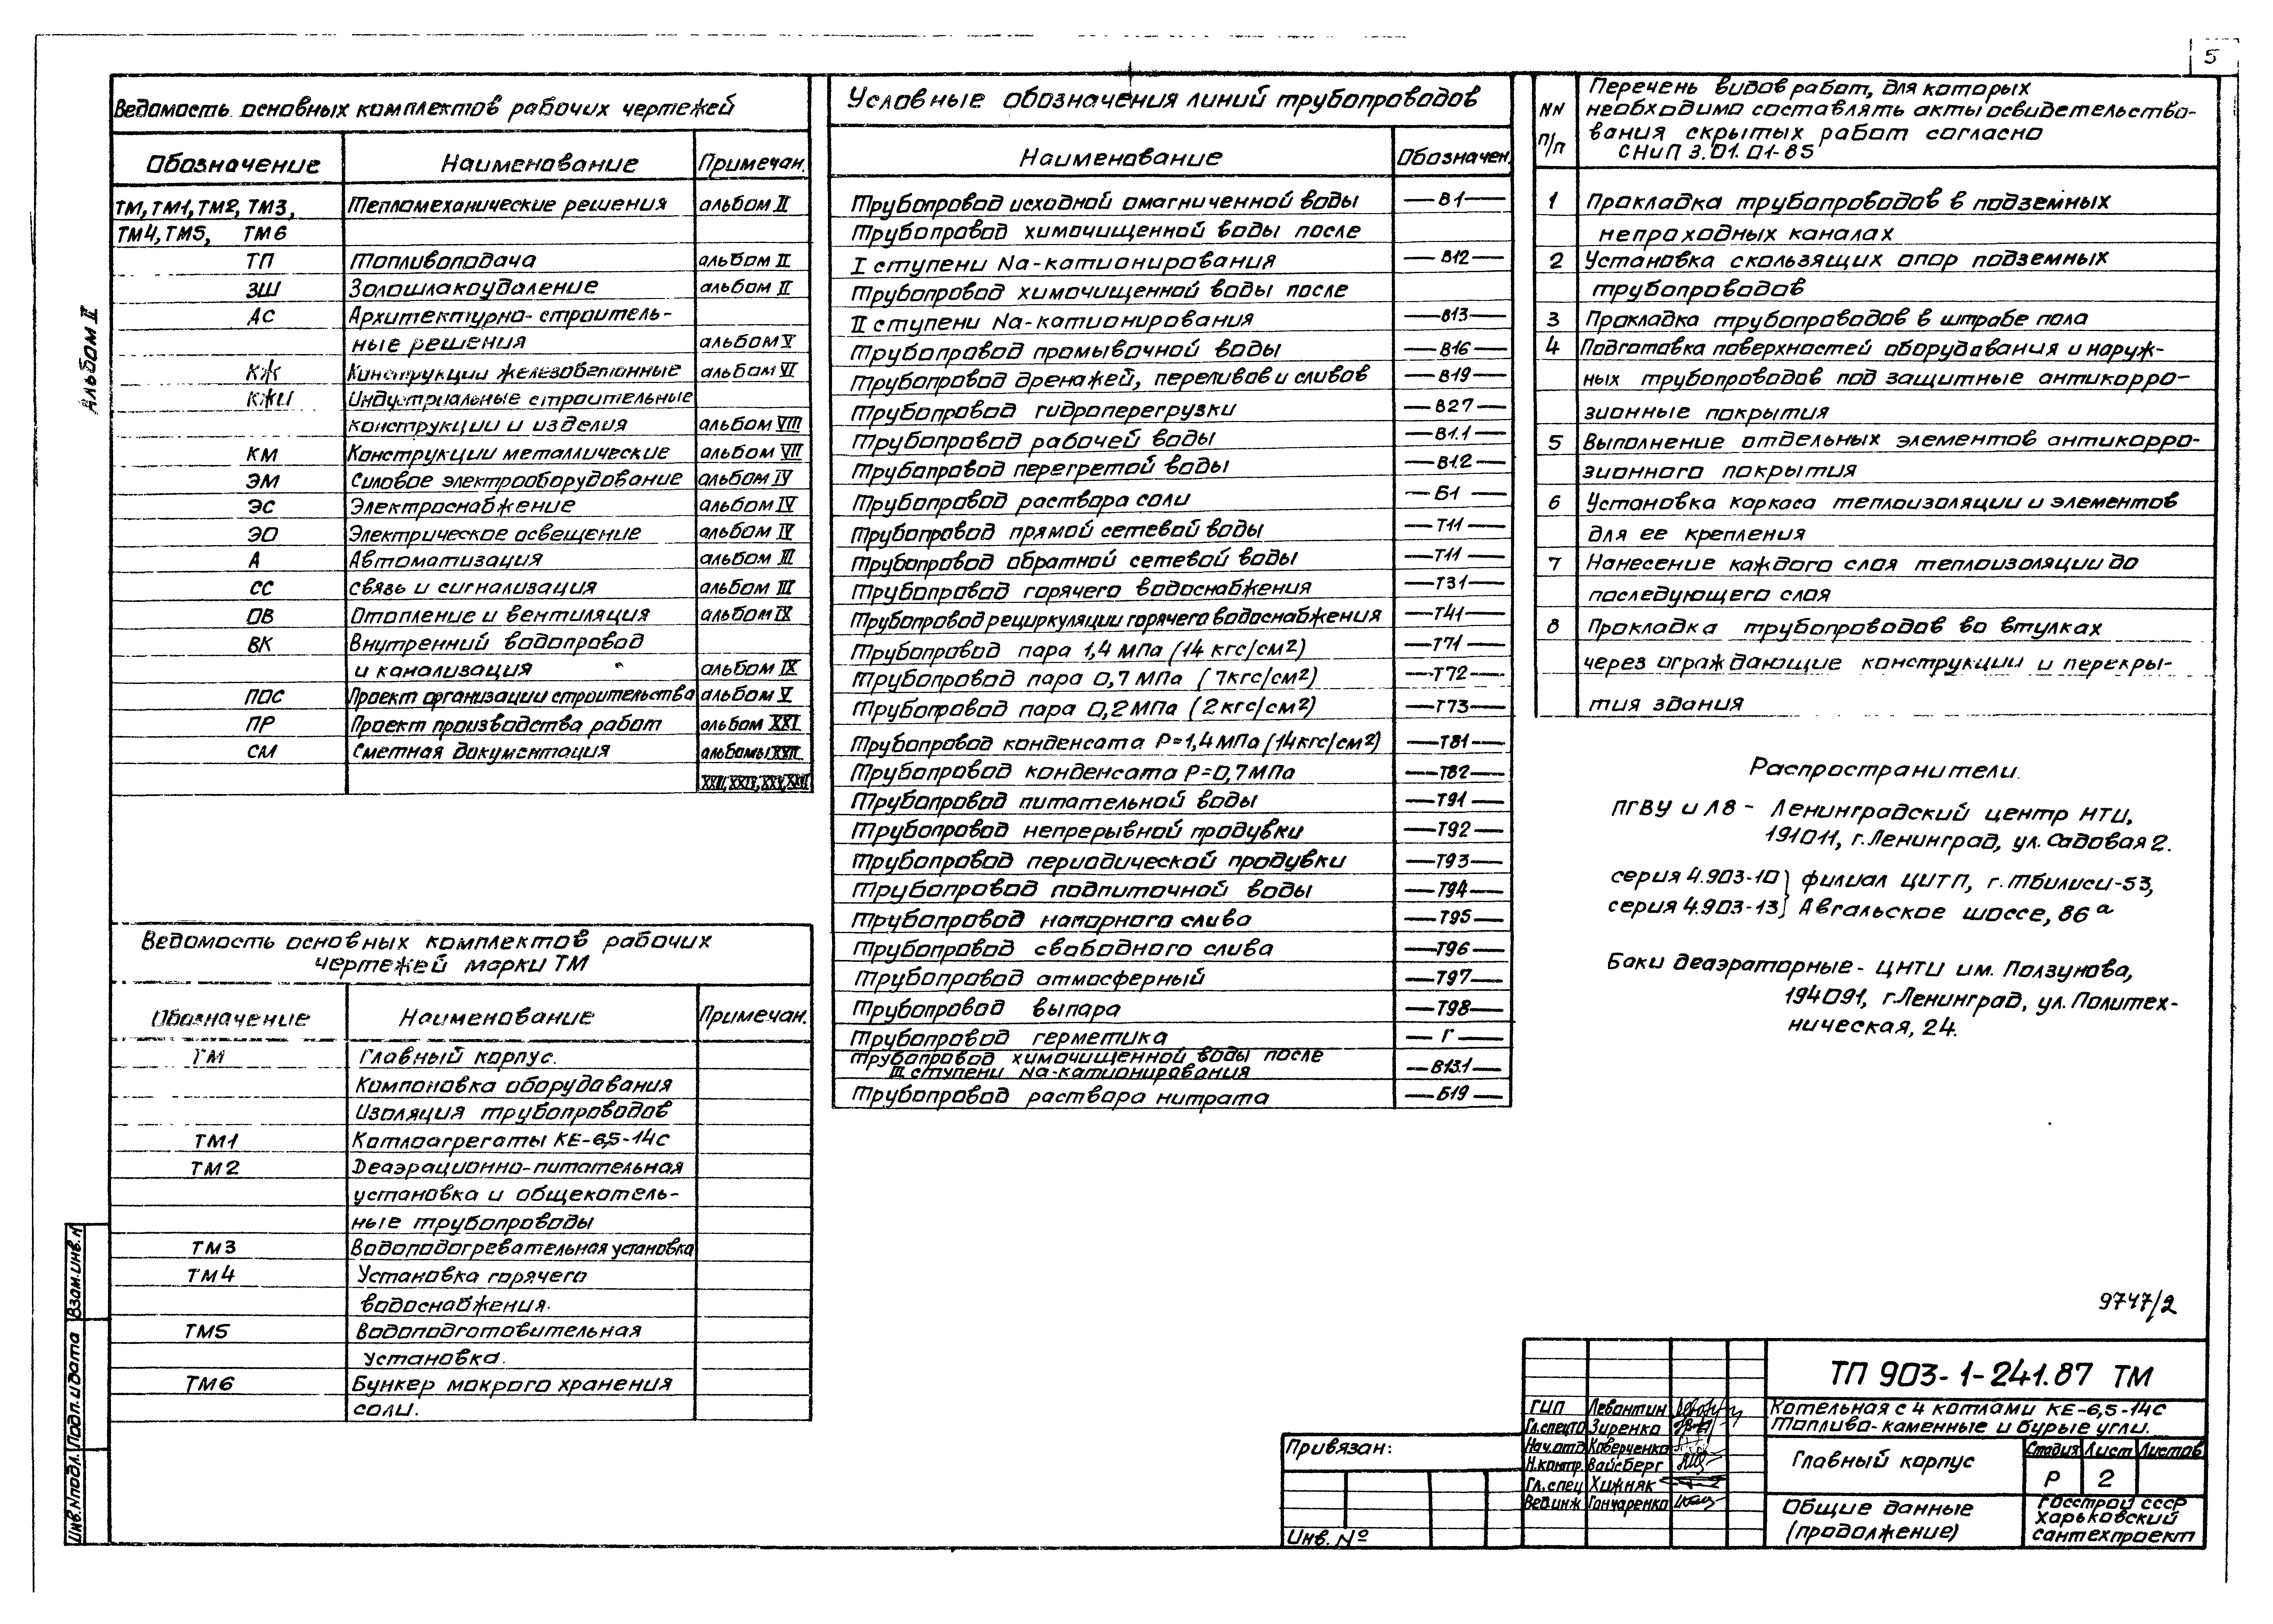 5
Альбом II
Ведомость основных комплектов рабочих чертежей
Обозначение Наименование Примечан.
ТМ, ТМ1, ТМ2, ТМ3, Тепломеханические решения альбом II
ТМ4, ТМ5, ТМ6
ТП Топливоподача альбом II
ЗШ Золошлакоудаление альбом II
АС Архитектурно-строитель-
ные решения альбом V
КЖ Конструкции железобетонные альбом VI
КЖИ Индустриальные строительные
конструкции и изделия альбом VIII
КМ Конструкции металлические альбом VII
ЭМ Силовое электрооборудование альбом IV
ЭС Электроснабжение альбом IV
ЭО Электрическое освещение альбом IV
А Автоматизация альбом III
СС связь и сигнализация альбом III
ОВ Отопление и вентиляция альбом IX
ВК Внутренний водопровод
и канализация альбом IX
ПОС Проект организации строительства альбом V
ПР Проект производства работ альбом XXI
СМ Сметная документация альбомы XXII
Ведомость основных комплектов рабочих
чертежей марки ТМ
Обозначение Наименование Примечан.
ТМ Главный корпус.
Компоновка оборудования
Изоляция трубопроводов
ТМ1 Котлоагрегаты КЕ-6,5-14с
ТМ2 Деаэрационно-питательная
установка и общекотель-
ные трубопроводы
ТМ3 Водоподогревательная установка
ТМ4 Установка горячего
водоснабжения.
ТМ5 Водоподготовительная
установка.
ТМ6 Бункер мокрого хранения
соли.
Условные обозначения линий трубопроводов
Наименование Обозначен.
Трубопровод исходной омагниченной воды —В1—
Трубопровод химочищенной воды после
I ступени Na-катионирования —В12—
Трубопровод химочищенной воды после
II ступени Na-катионирования —В13—
Трубопровод промывочной воды —В16—
Трубопровод дренажей, переливов и сливов —В19—
Трубопровод гидроперегрузки —В27—
Трубопровод рабочей воды —В1.1—
Трубопровод перегретой воды —В1.2—
Трубопровод раствора соли —Б1—
Трубопровод прямой сетевой воды —Т11—
Трубопровод обратной сетевой воды —Т11—
Трубопровод горячего водоснабжения —Т31—
Трубопровод рециркуляции горячего водоснабжения —Т41—
Трубопровод пара 1,4 МПа (14 кгс/см²) —Т71—
Трубопровод пара 0,7 МПа (7кгс/см²) —Т72—
Трубопровод пара 0,2МПа (2кгс/см²) —Т73—
Трубопровод конденсата Р=1,4МПа (14кгс/см²) —Т81—
Трубопровод конденсата Р=0,7МПа —Т82—
Трубопровод питательной воды —Т91—
Трубопровод непрерывной продувки —Т92—
Трубопровод периодической продувки —Т93—
Трубопровод подпиточной воды —Т94—
Трубопровод напорного слива —Т95—
Трубопровод свободного слива —Т96—
Трубопровод атмосферный —Т97—
Трубопровод выпара —Т98—
Трубопровод герметика —Г—
Трубопровод химочищенной воды после
III ступени Na-катионирования —В13.1—
Трубопровод раствора нитрата —Б19—
NN п/п
Перечень видов работ, для которых
необходимо составлять акты освидетельство-
вания скрытых работ согласно
СНиП 3.01.01-85
1 Прокладка трубопроводов в подземных
непроходных каналах
2 Установка скользящих опор подземных
трубопроводов
3 Прокладка трубопроводов в штрабе пола
4 Подготовка поверхностей оборудования и наруж-
ных трубопроводов под защитные антикорро-
зионные покрытия
5 Выполнение отдельных элементов антикорро-
зионного покрытия
6 Установка каркаса теплоизоляции и элементов
для ее крепления
7 Нанесение каждого слоя теплоизоляции до
последующего слоя
8 Прокладка трубопроводов во втулках
через ограждающие конструкции и перекры-
тия здания
Распространители.
ПГВУ и Л8 - Ленинградский центр НТИ,
191011, г.Ленинград, ул. Садовая 2.
серия 4.903-10 } филиал ЦИТП, г. Тбилиси-53,
серия 4.903-13 } Авгальское шоссе, 86ᵃ
Баки деаэраторные - ЦНТИ им. Ползунова,
194091, г.Ленинград, ул. Политех-
ническая, 24.
9747/2
ТП 903-1-241.87 ТМ
Котельная с 4 котлами КЕ-6,5-14с
Топливо-каменные и бурые угли.
ГИП Левантин
Гл.спец.то Зиренко
Нач.отд Коверченко
Н.контр. Вайсберг
Гл.спец Хижняк
Вед.инж Гончаренко
Главный корпус
Стадия Лист Листов
Р 2
Общие данные
(продолжение)
Госстрой СССР
Харьковский
сантехпроект
Привязан:
Инв. №
Взам.инв.N
Подп. и дата
Инв.Nподл.